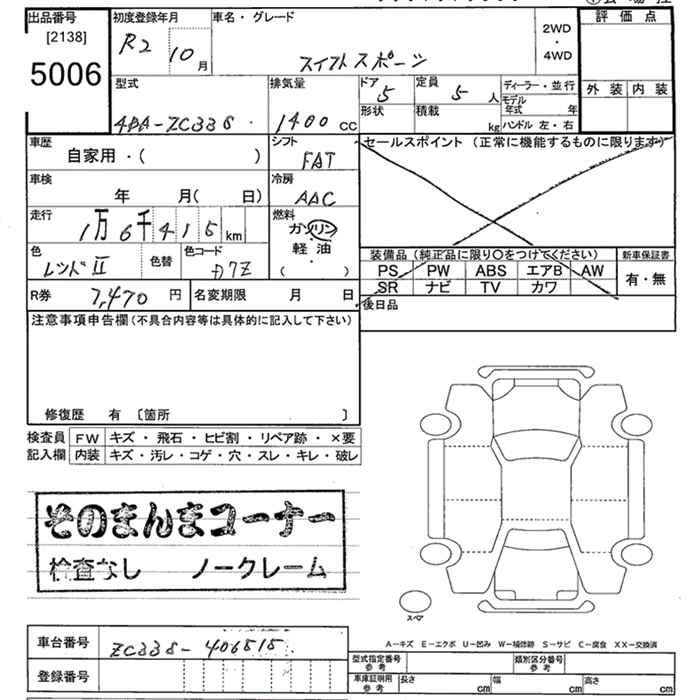 出品番号 初度登録年月 車名・グレード 評価点
[2138]
5006
R2 10月 スイフトスポーツ 2WD・4WD
外装 内装
型式 排気量 ドア 定員 ディーラー・並行
5 5人 モデル年式 年
4BA-ZC33S 1400cc 形状 積載 kg ハンドル 左・右
車歴 シフト セールスポイント (正常に機能するものに限ります)
自家用・( ) FAT
車検 冷房
年 月( 日) AAC
走行 燃料
1万6千415km ガソリン
軽油
( )
色 色替 色コード 装備品(純正品に限り〇をつけてください) 新車保証書
レッドⅡ PS PW ABS エアB AW 有・無
SR ナビ TV カワ
R券 7,470円 名変期限 月 日 後日品
注意事項申告欄(不具合内容等は具体的に記入して下さい)
修復歴 有 〔箇所 〕
検査員 FW キズ・飛石・ヒビ割・リペア跡・×要
記入欄 内装 キズ・汚レ・コゲ・穴・スレ・キレ・破レ
そのまんまコーナー
検査なし ノークレーム
スペア
A-キズ E-エクボ U-凹み W-補修跡 S-サビ C-腐食 XX-交換済
車台番号 ZC33S-406515
型式指定番号 参考 類別区分番号 参考
登録番号
車庫証明用 参考 長さ cm 幅 cm 高さ cm